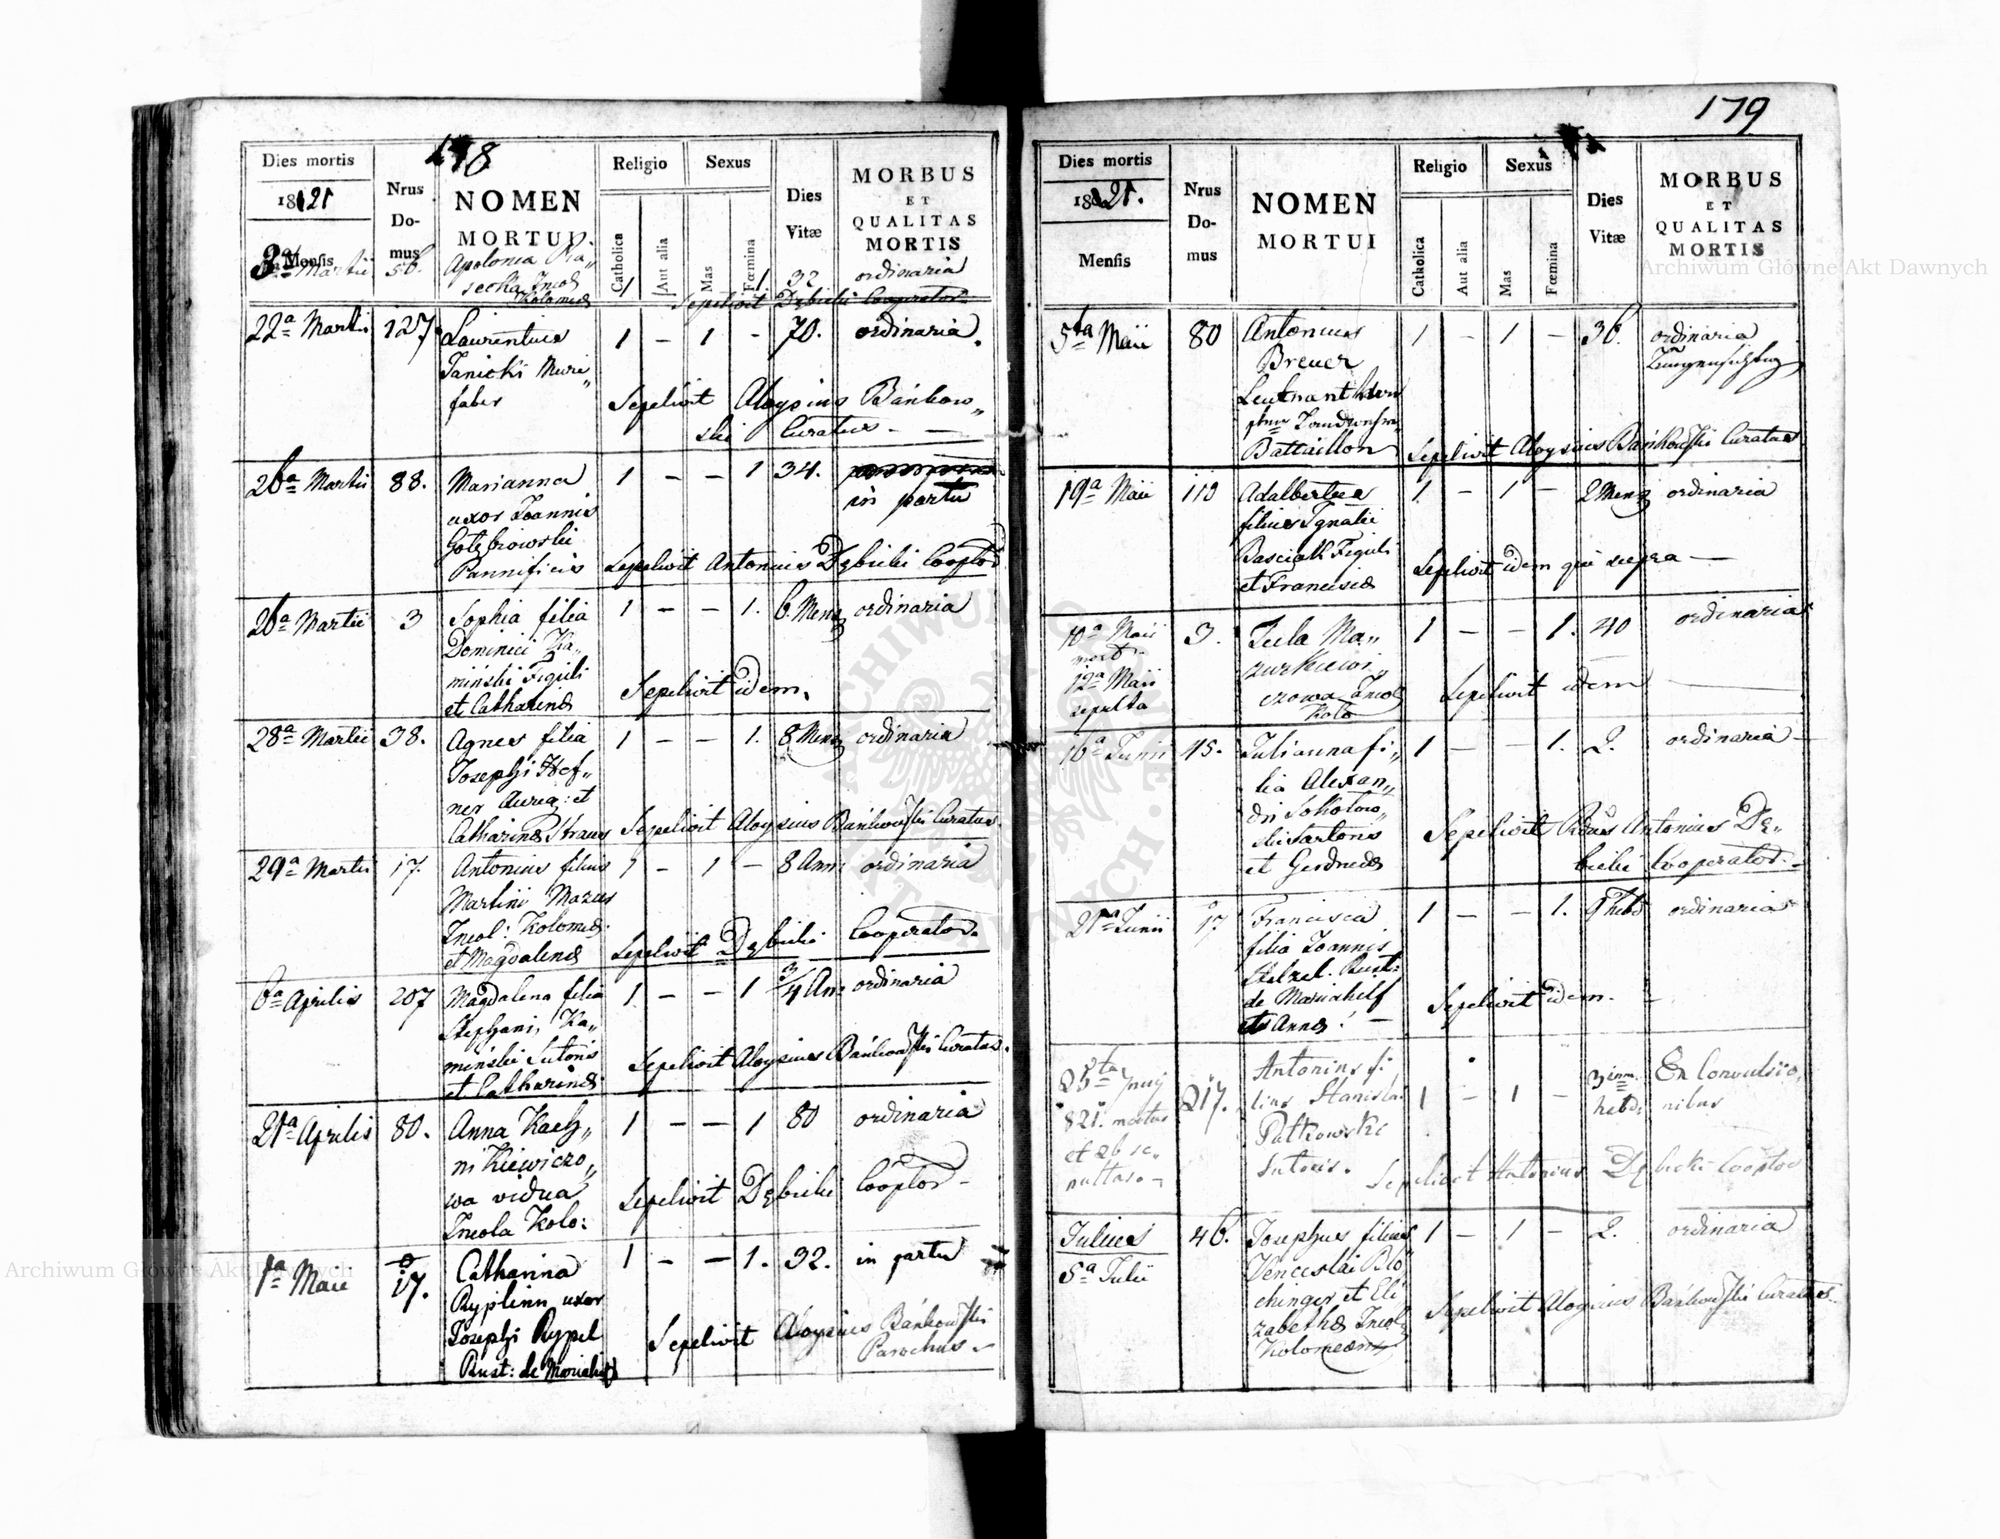 178
Dies mortis
1821
Mensis
Nrus Do-
mus
NOMEN
MORTUI
Religio
Catholica
Aut alia
Sexus
Mas
Fœmina
Dies
Vitæ
MORBUS
ET
QUALITAS
MORTIS
3a Martii 56. Apolonia Ra„
secka Incol
Kolomeæ
1 1 32 ordinaria
Sepelivit Dębicki Cooperator
22a Martii 127 Laurentius 1 - 1 - 70. ordinaria.
Janicki Muri„
faber
Sepelivit Aloysius Bańkow„
ski Curatus - —
26a Martii 88. Marianna 1 - - 1 34.
in partu
uxor Joannis
Gołębiowski
Pannificis
Sepelivit Antonius Dębicki Cooptor
26a Martii 3 Sophia filia 1 - - 1. 6. Mens ordinaria
Dominici Ka„
minski Figuli
et Catharinæ
Sepelivit idem.
28a Martii 38. Agnes filia 1 - - 1. 8 Mens ordinaria
Josephi Hef„
ner Aurig: et
Catharinæ Straus
Sepelivit Aloysius Bańkowski Curatus.
29a Martii 17. Antonius filius 1 - 1 - 8 Ann: ordinaria
Martini Mazur
Incol: Kolomeæ
et Magdalenæ
Sepelivit Dębicki Cooperator.
6a Aprilis 207 Magdalena filia 1. - - 1 3/4 An: ordinaria
Stephani Ka„
minski Sutoris
et Catharinæ
Sepelivit Aloysius Bańkowski Curatus.
21a Aprilis 80. Anna Kach„ 1 - - 1 80 ordinaria
nikiewiczo„
wa vidua
Incola Kolo:
Sepelivit Dębicki Cooptor -
1a Maii 17. Catharina 1 - - 1. 32. in partu
Ryplinn uxor
Josephi Rypel
Rust: de Mariahilf
Sepelivit Aloysius Bańkowski
Parochus -
179
Dies mortis
1821.
Mensis
Nrus
Do-
mus
NOMEN
MORTUI
Religio
Catholica
Aut alia
Sexus
Mas
Fœmina
Dies
Vitæ
MORBUS
ET
QUALITAS
MORTIS
5ta Maii 80 Antonius 1 - 1 - 36. ordinaria
Breuer
Leutnant
Battaillon
Sepelivit Aloysius Bańkowski Curatus
19a Maii 113 Adalbertus 1 - 1 - 2 Mens ordinaria
filius Ignatii
Basciak Figuli
et Franciscæ
Sepelivit idem qui supra —
10a Maii
mort.
12a Maii
sepulta
3. Jula Ma„ 1 - - 1. 40 ordinaria
zurkiewi„
czowa Incol
Kolo
Sepelivit idem
16a Junii 45. Julianna fi„ 1 - - 1. 2. ordinaria
lia Alexan„
dri Sokołow„
ski Sartoris
et Gerdrudæ
Sepelivit Rdus Antonius Dę„
bicki Cooperator. -
21a Junii 17 Francisca 1 - - 1. 9 hebd ordinaria
filia Joannis
Stelzel. Rust:
de Mariahilf
et Annæ. —
Sepelivit idem. —
25ta Junij
821. mortus
et ab se„
pultus. -
217. Antonius fi„ 1 - 1 - 3 hebd: Ex Convulsio„
nibus
lius Stanisla
Patkowski
Sutoris.
Sepelivit Antonius Dębicki Cooptor
Julius
5a Julii
46. Josephus filius 1 - 1 - 2. ordinaria
Venceslai Blo
chinger et Eli
zabethæ Incol
Kolomeæns
Sepelivit Aloysius Bańkowski Curatus.
ARCHIWUM GŁÓWNE AKT DAWNYCH
Archiwum Główne Akt Dawnych
Archiwum Główne Akt Dawnych